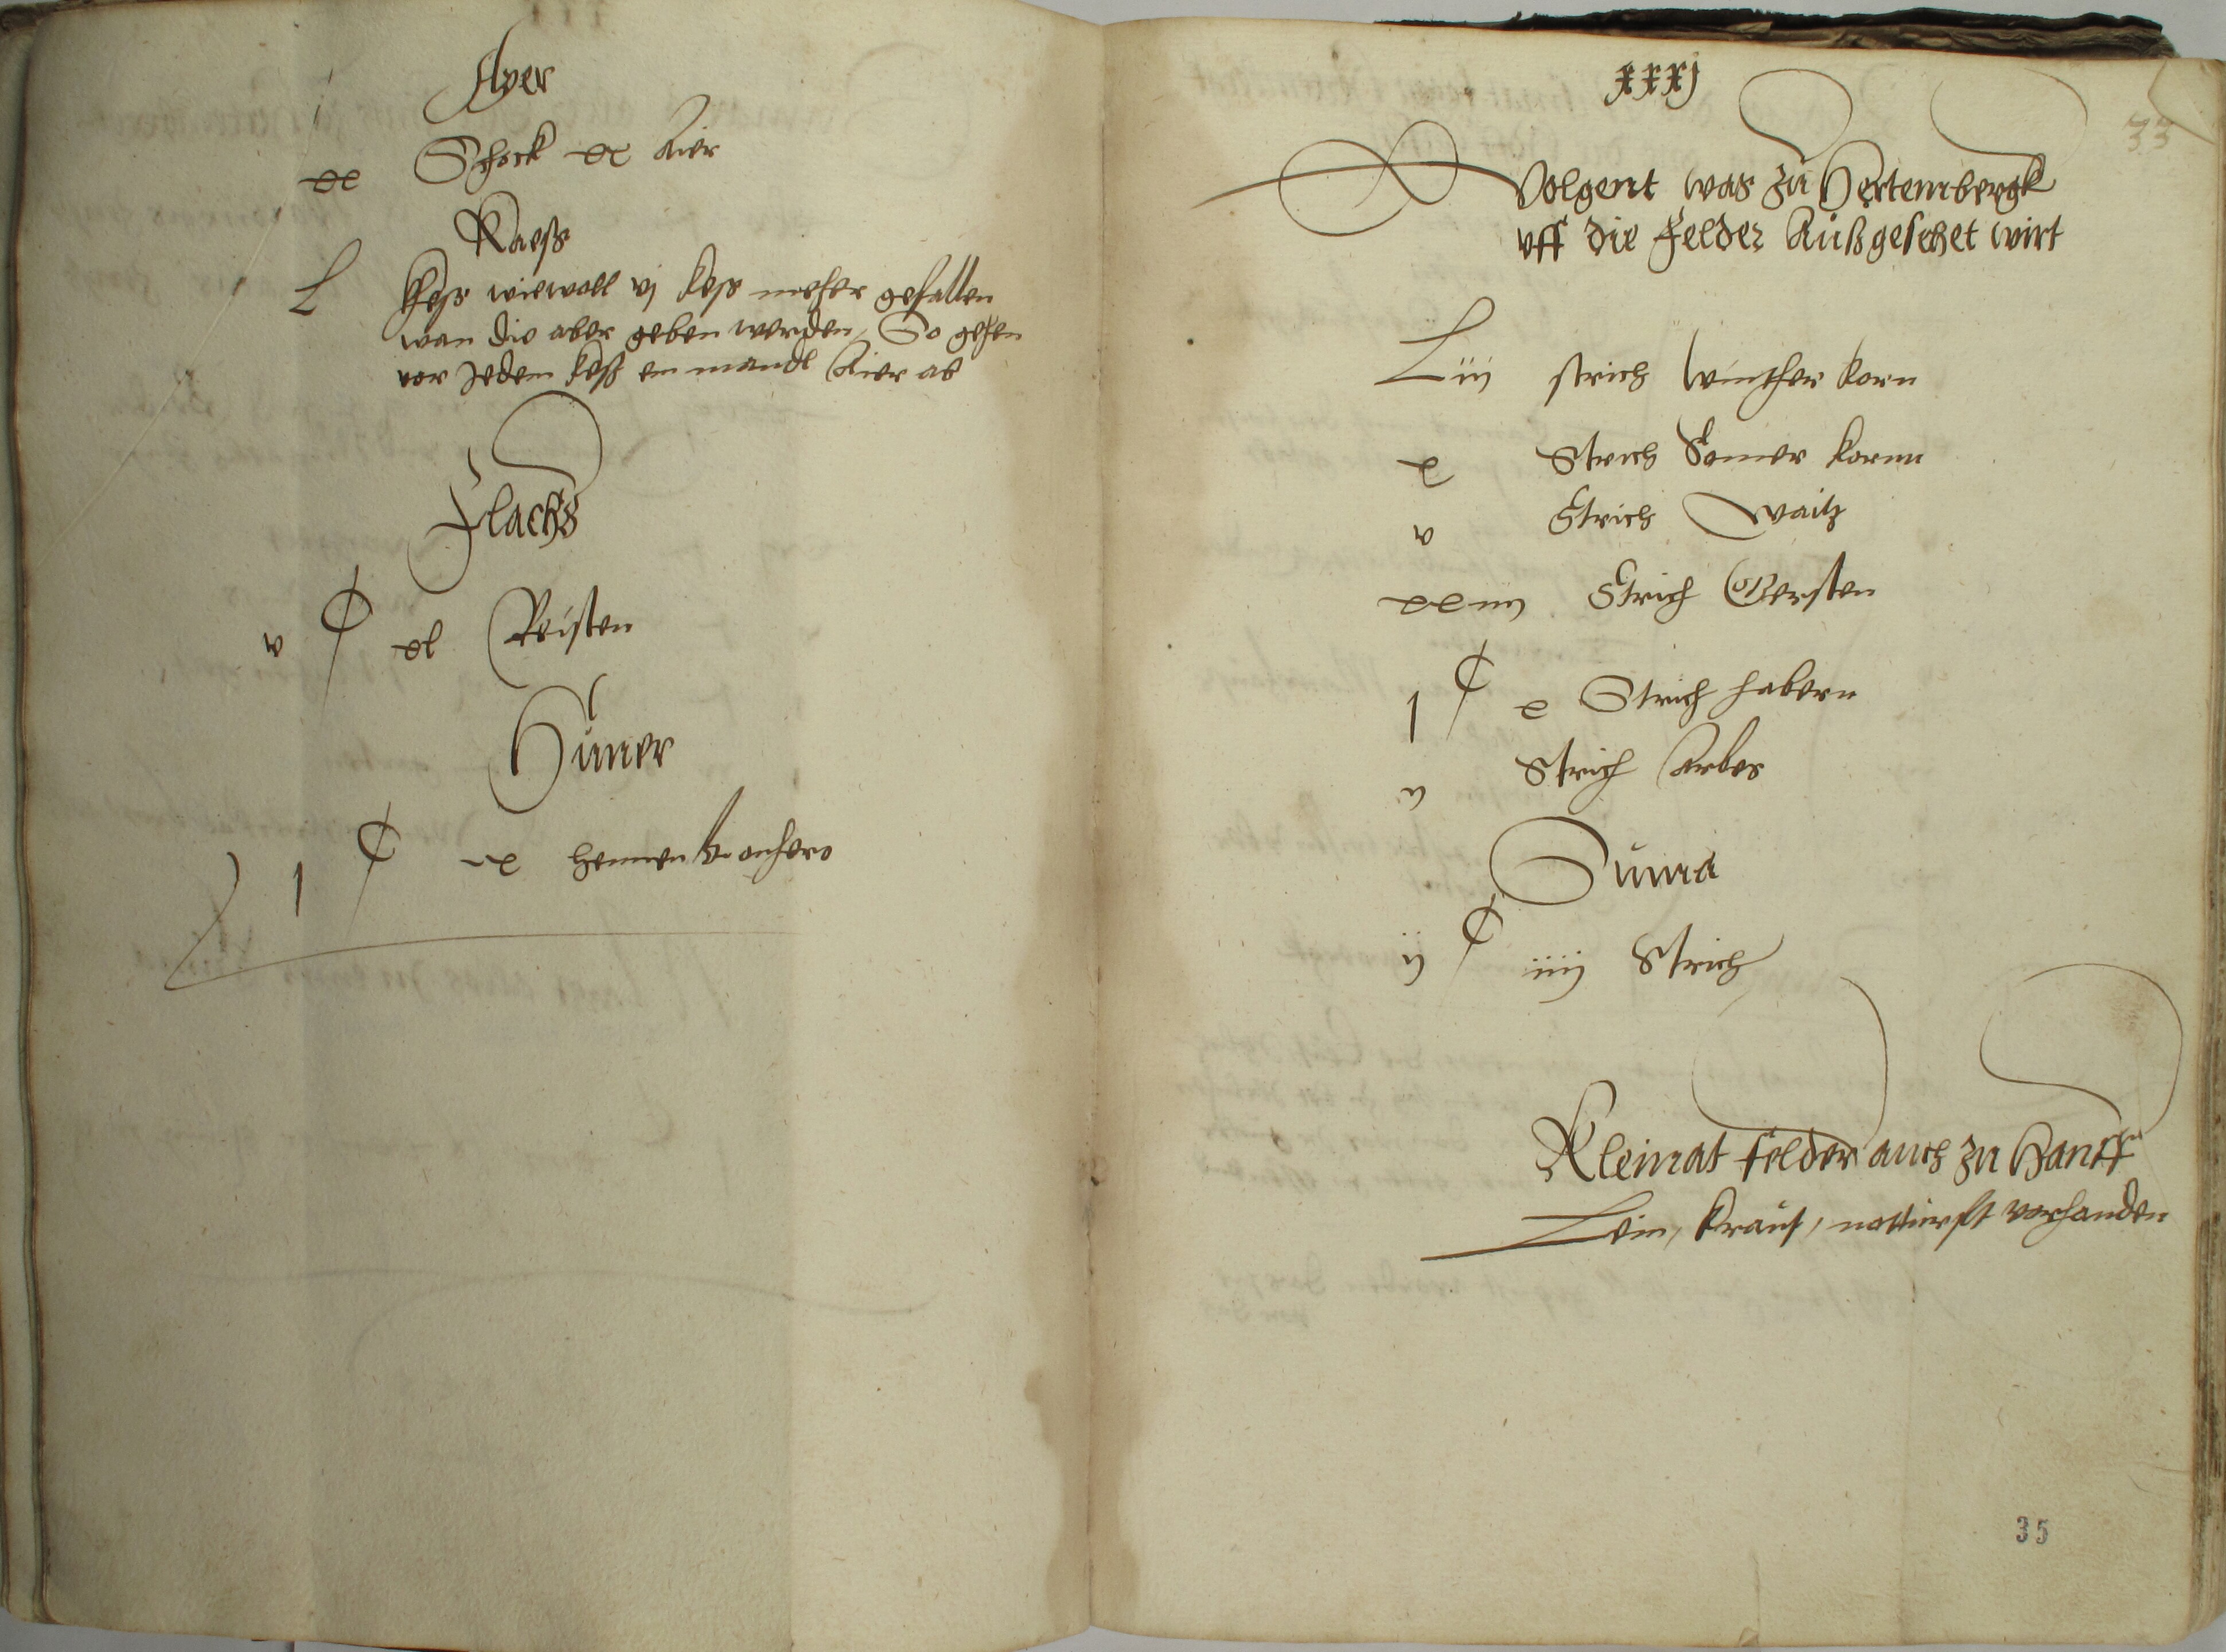 Ayer
xx Schock xx Aier
Kaeß
L Keß wiewoll vj keß meher gefallen
wan die aber geben werden, So gehen
vor Jedem keß ein mandl Aier ab
Flachs
v C xl Reisten
Hüner
j C x hennen
xxxj
33
Volgent was zu Hertembergk
vff die Felder Außgesehet wirt
Liij strich winther korn
x Strich Somer kornn
v Strich Waitz
xxiiij Strich Gersten
j C x Strich habern
ij Strich Arbes
Suma
ij C iiij Strich
Kleinat felder auch zu Hanff
Lein, kraut, notturfft vorhanden
35